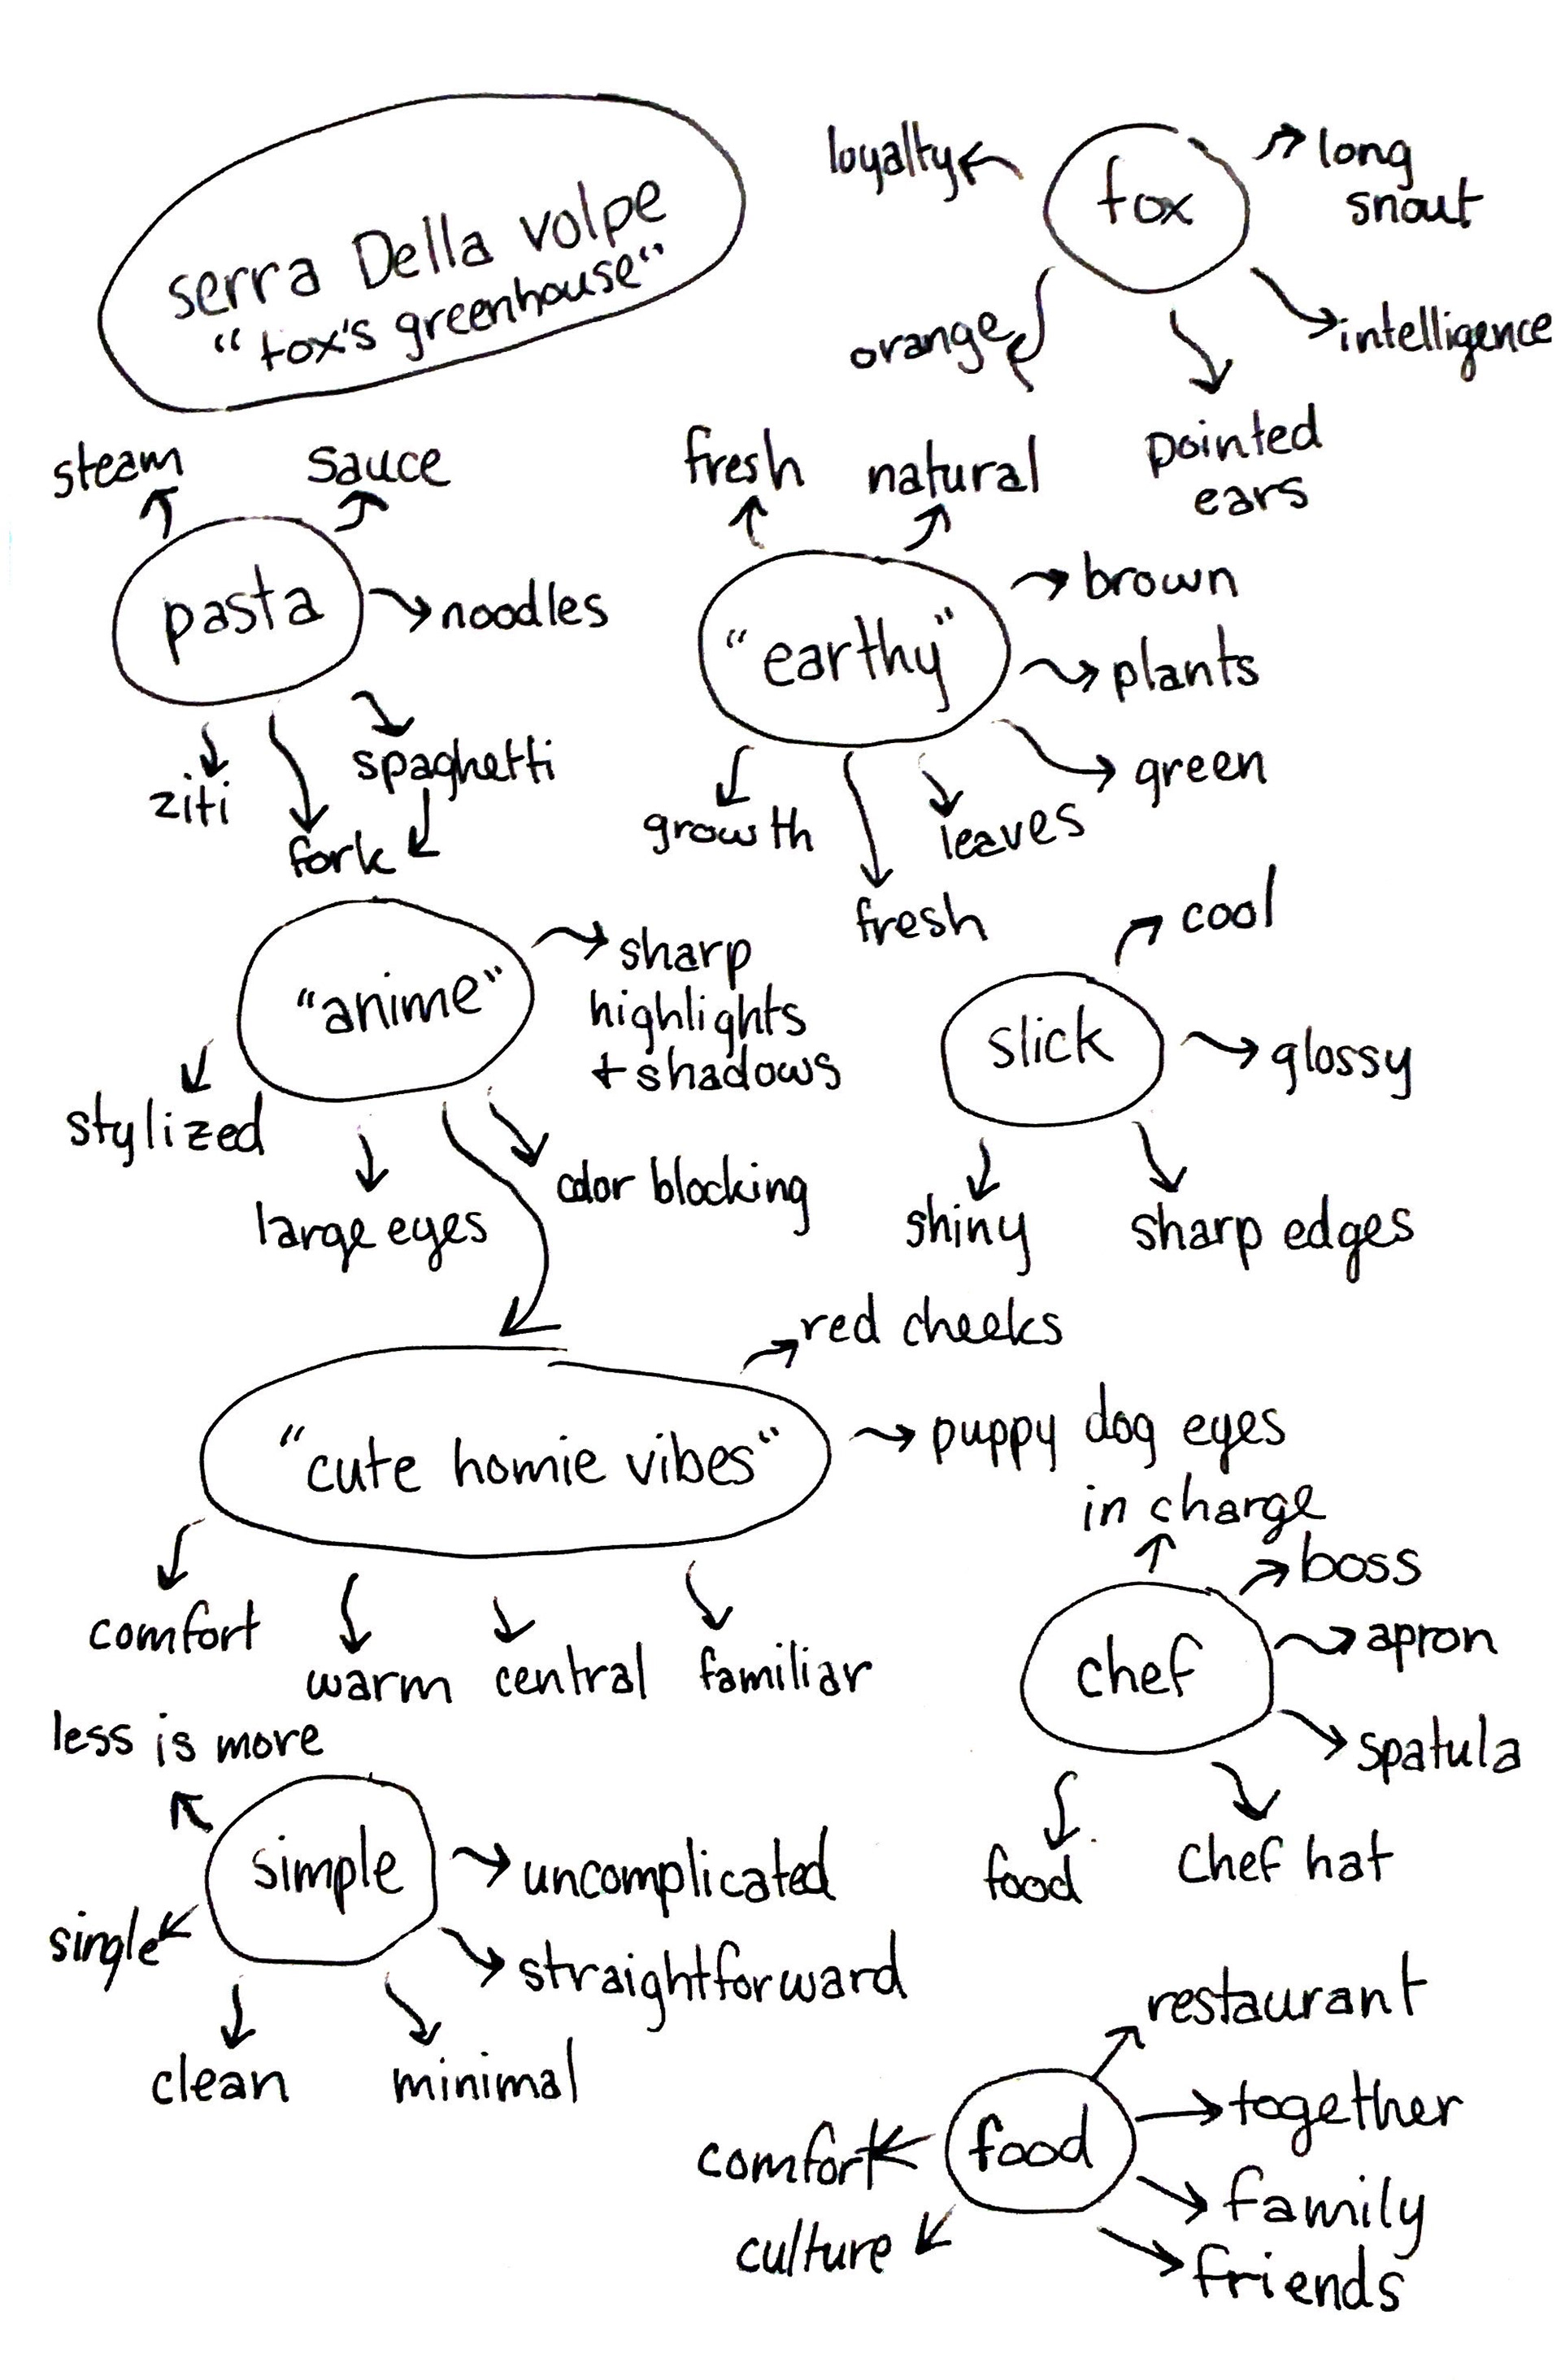 serra Della volpe
“fox's greenhouse“
fox
loyalty
long
snout
orange
intelligence
pointed
ears
pasta
steam
sauce
noodles
ziti
fork
spaghetti
“earthy”
fresh
natural
brown
plants
green
growth
leaves
fresh
“anime”
sharp
highlights
+ shadows
stylized
large eyes
color blocking
slick
cool
glossy
shiny
sharp edges
“cute homie vibes“
red cheeks
puppy dog eyes
comfort
warm
central
familiar
chef
in charge
boss
apron
spatula
food
chef hat
simple
less is more
uncomplicated
single
straightforward
clean
minimal
food
restaurant
together
comfort
family
culture
friends